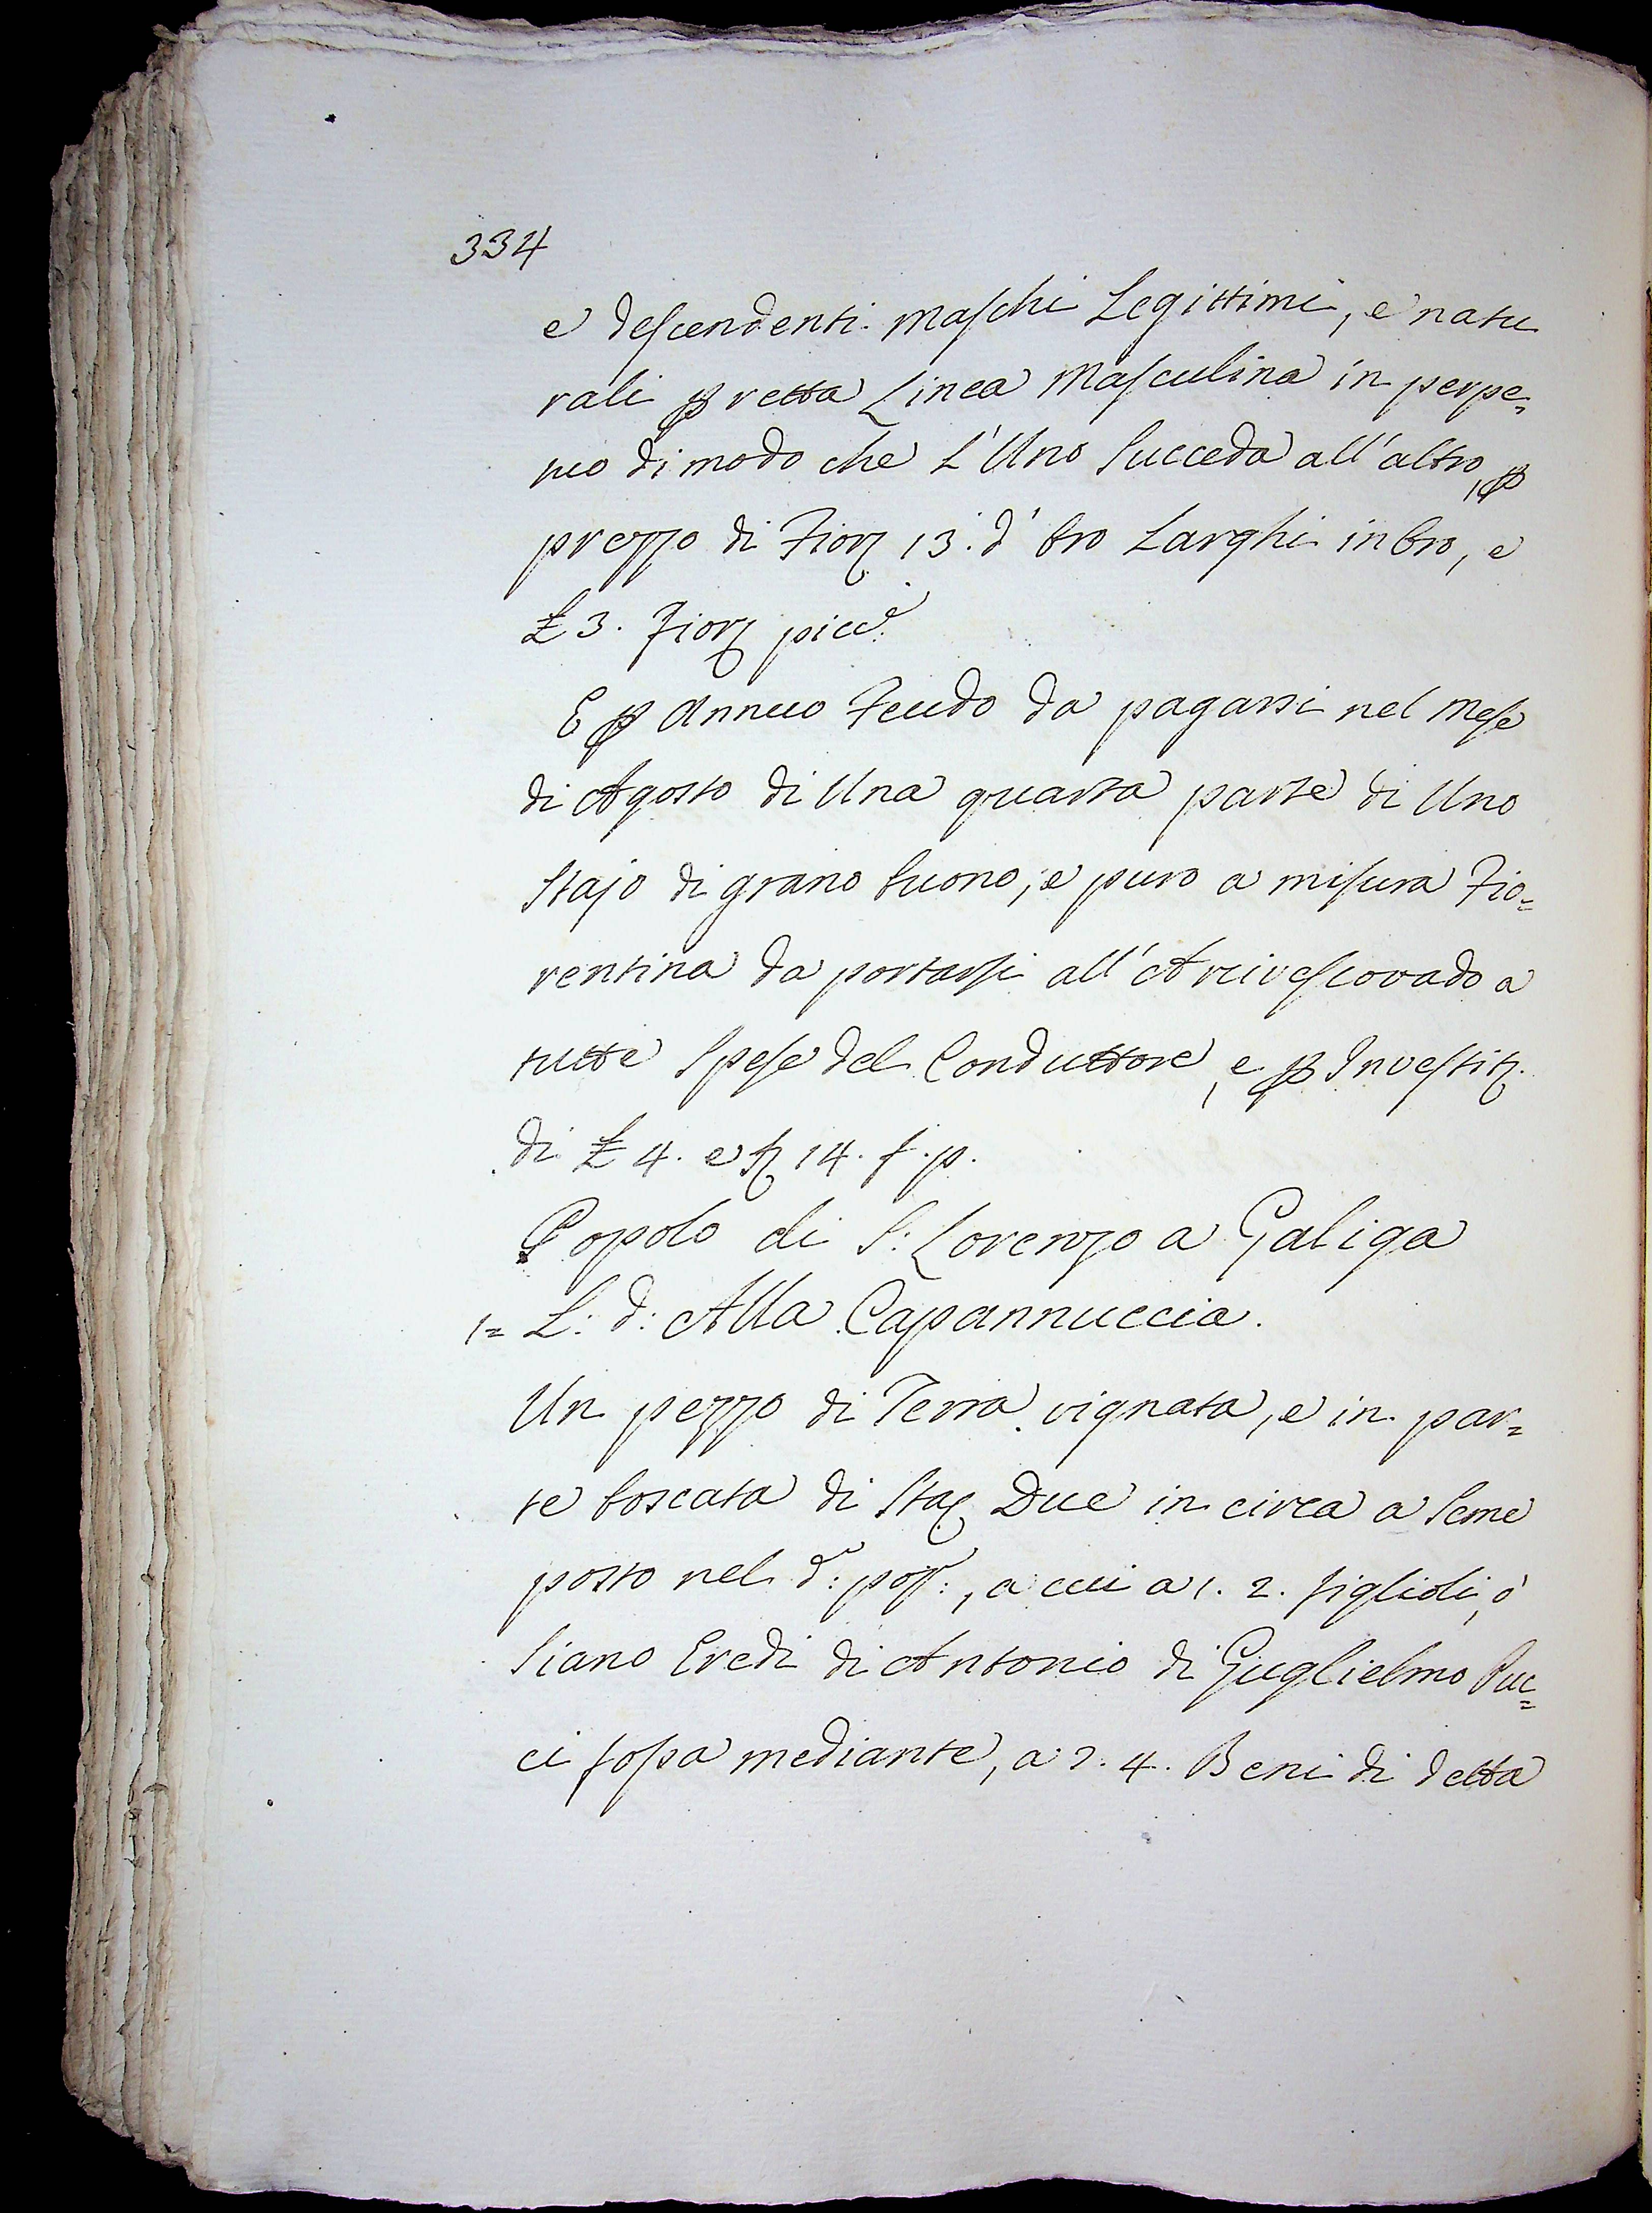 334
e descendenti maschi Legittimi, e natu
rali ꝑ retta Linea Masculina in perpe=
tuo di modo che L'Uno Succeda all'altro, ꝑ
prezzo di Fior. 13. d'Oro Larghi in Oro, e
£ 3. Fior. picc:
E ꝑ Annuo Feudo da pagarsi nel Mese
di Agosto di Una quarta parte di Uno
Stajo di grano buono, e puro a misura Fio=
rentina da portarsi all'Arcivescovado a
tutte Spese del Conduttore, e ꝑ Investit.
di £ 4. e s. 14. f. p.
Popolo di S: Lorenzo a Galiga
1= L: d: Alla Capannuccia.
Un pezzo di Terra vignata, e in par=
te boscata di Sta. Due in circa a Seme
posto nel d.º: pop.:, a cui a 1. 2. figlioli, ò
Siano Eredi di Antonio di Guglielmo Puc=
ci fossa mediante, a 2. 4. Beni di detta